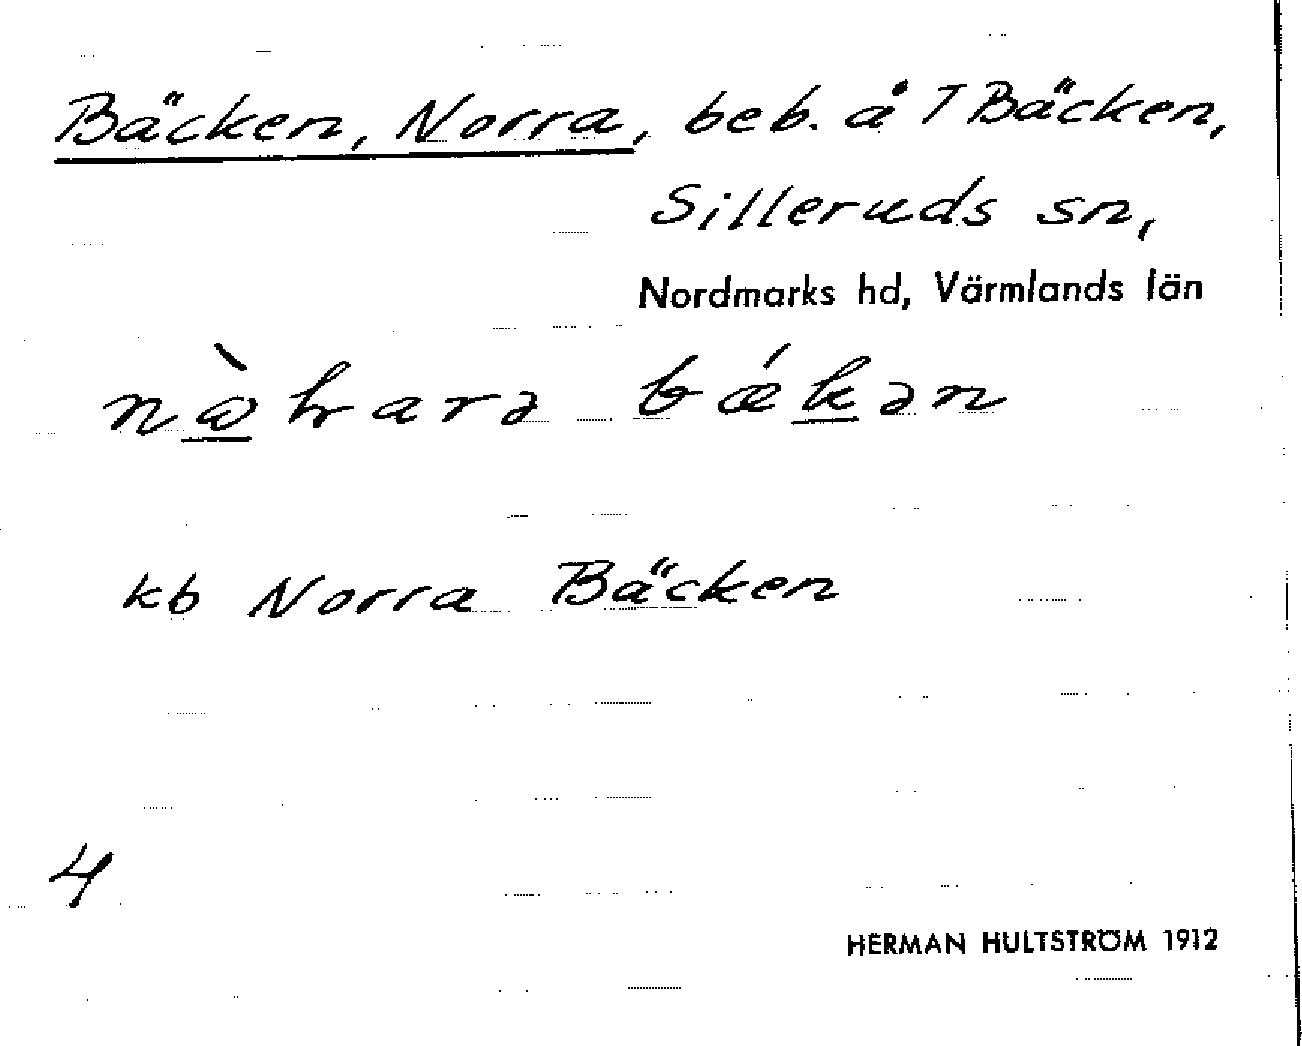 Bäcken, Norra, beb. å 7 Bäcken,
Silleruds sn,
Nordmarks hd, Värmlands län
kb Norra Bäcken
4
HERMAN HULTSTRÖM 1912